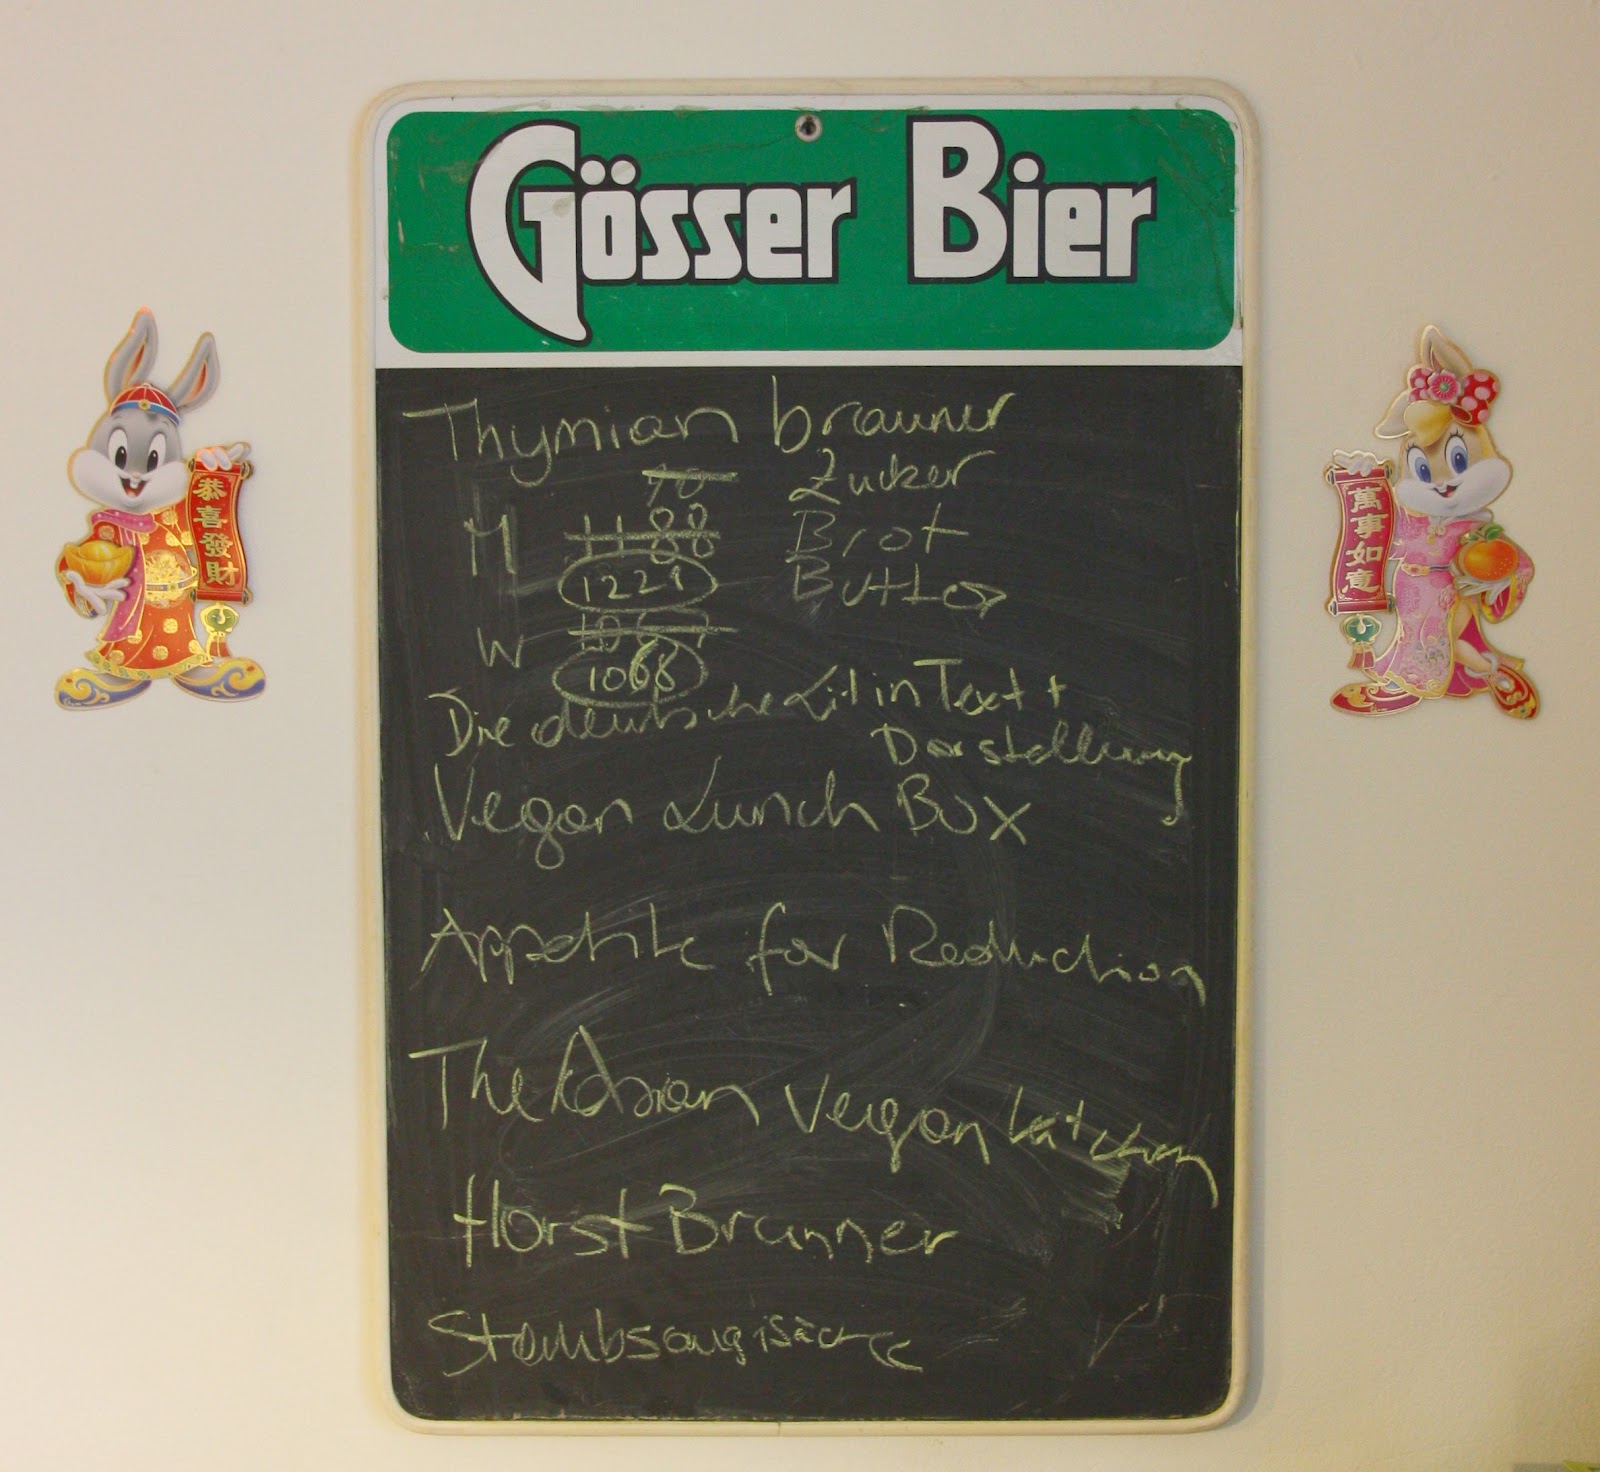 Gösser Bier
Thymian brauner
Zucker
Brot
Butter
M
1221
W
1068
Die deutsche Lit in Text +
Darstellung
Vegan Lunch Box
Appetite for Reduction
The Asian Vegan Kitchen
Horst Brunner
恭喜發財
萬事如意